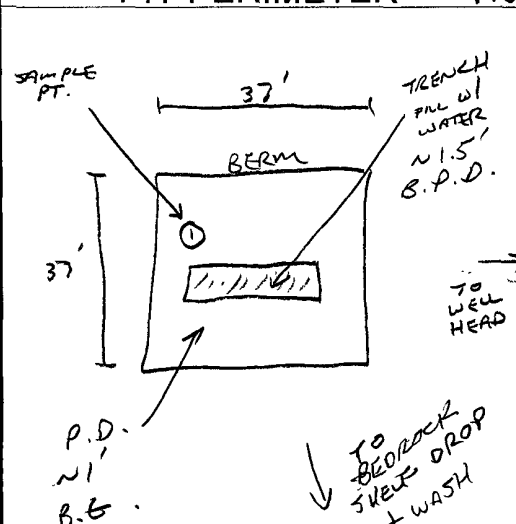 PIT PERIMETER
SAMPLE
PT.
37'
TRENCH
FILL W/
WATER
~1.5'
B.P.D.
BERM
1
37'
TO
WELL
HEAD
P.D.
~1'
B.G.
TO
BEDROCK
SHELF DROP
+ WASH